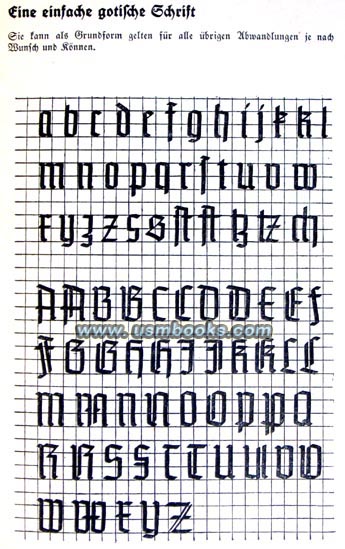 Eine einfache gotische Schrift
Sie kann als Grundform gelten für alle übrigen Abwandlungen je nach
Wunsch und Können.
a b c d e f g h i j k k l
m n o p q r ſ t u v w
x y z z s s ſt ſt tz tz ch
A A B B C C D D E E F
www.usmbooks.com
F G G H H I J K K L L
M M N N O O P P Q
R R S S T T U U V V
W W X Y Z